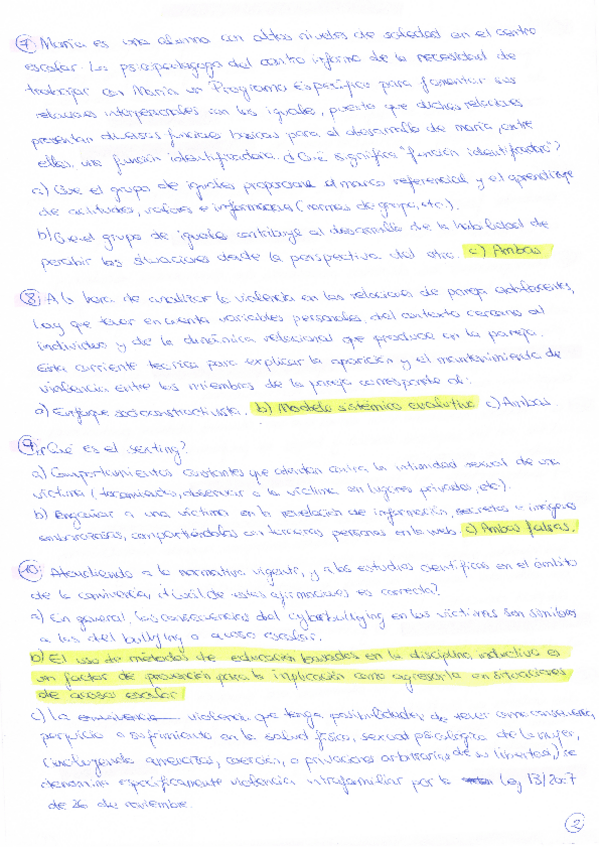 7) María es una alumna con altos niveles de soledad en el centro
escolar. La psicopedagoga del centro informa de la necesidad de
trabajar con María un Programa Específico para fomentar sus
relaciones interpersonales con los iguales, puesto que dichas relaciones
presentan diversas funciones básicas para el desarrollo de maría, entre
ellas, una función identificadora. ¿Qué significa "función identificadora"?
a) Que el grupo de iguales proporciona el marco referencial y el aprendizaje
de actitudes, valores e información (normas de grupo, etc.).
b) Que el grupo de iguales contribuye al desarrollo de la habilidad de
percibir las situaciones desde la perspectiva del otro. c) Ambas
8) A la hora de analizar la violencia en las relaciones de pareja adolescentes,
hay que tener en cuenta variables personales, del contexto cercano al
individuo y de la dinámica relacional que produce en la pareja.
Esta corriente teórica para explicar la aparición y el mantenimiento de
violencia entre los miembros de la pareja corresponde al:
a) Enfoque socioconstructivista. b) Modelo sistémico evolutivo c) Ambas.
9) ¿Qué es el sexting?
a) Comportamientos constantes que atentan contra la intimidad sexual de una
víctima (tocamientos, observar a la víctima en lugares privados, etc).
b) Engañar a una víctima en la revelación de información, secretos o imágenes
embarazosas, compartiéndolas con terceras personas en la web. c) Ambas falsas.
10) Atendiendo a la normativa vigente, y a los estudios científicos en el ámbito
de la convivencia, ¿cuál de estas afirmaciones es correcta?
a) En general, las consecuencias del cyberbullying en las víctimas son similares
a las del bullying o acoso escolar.
b) El uso de métodos de educación basados en la disciplina inductiva es
un factor de prevención para la implicación como agresor/a en situaciones
de acoso escolar
c) La violencia que tenga posibilidades de tener como consecuencia,
perjuicio o sufrimiento en la salud física, sexual psicológica de la mujer,
(incluyendo amenazas, coerción, o privaciones arbitrarias de su libertad,) se
denomina específicamente violencia intrafamiliar por la Ley 13/2007
de 26 de noviembre.
2